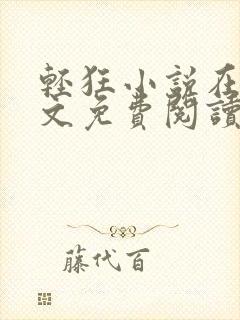 輕狂小說在
文免費閱讀
藤代百